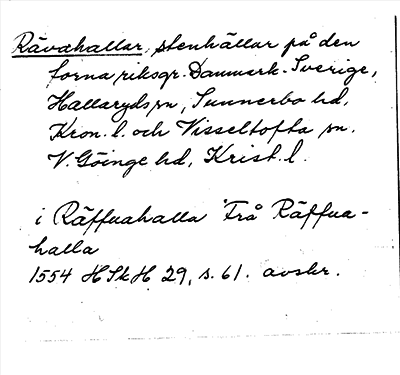 Rävahallar, stenhällar på den
forna riksgr. Danmark-Sverige,
Hallaryds sn, Sunnerbo hd,
Kron. l. och Visseltofta sn.
V. Göinge hd, Krist. l.
i Räffuahalla Frå Räffua-
halla
1554 HSkH 29, s. 61. avskr.